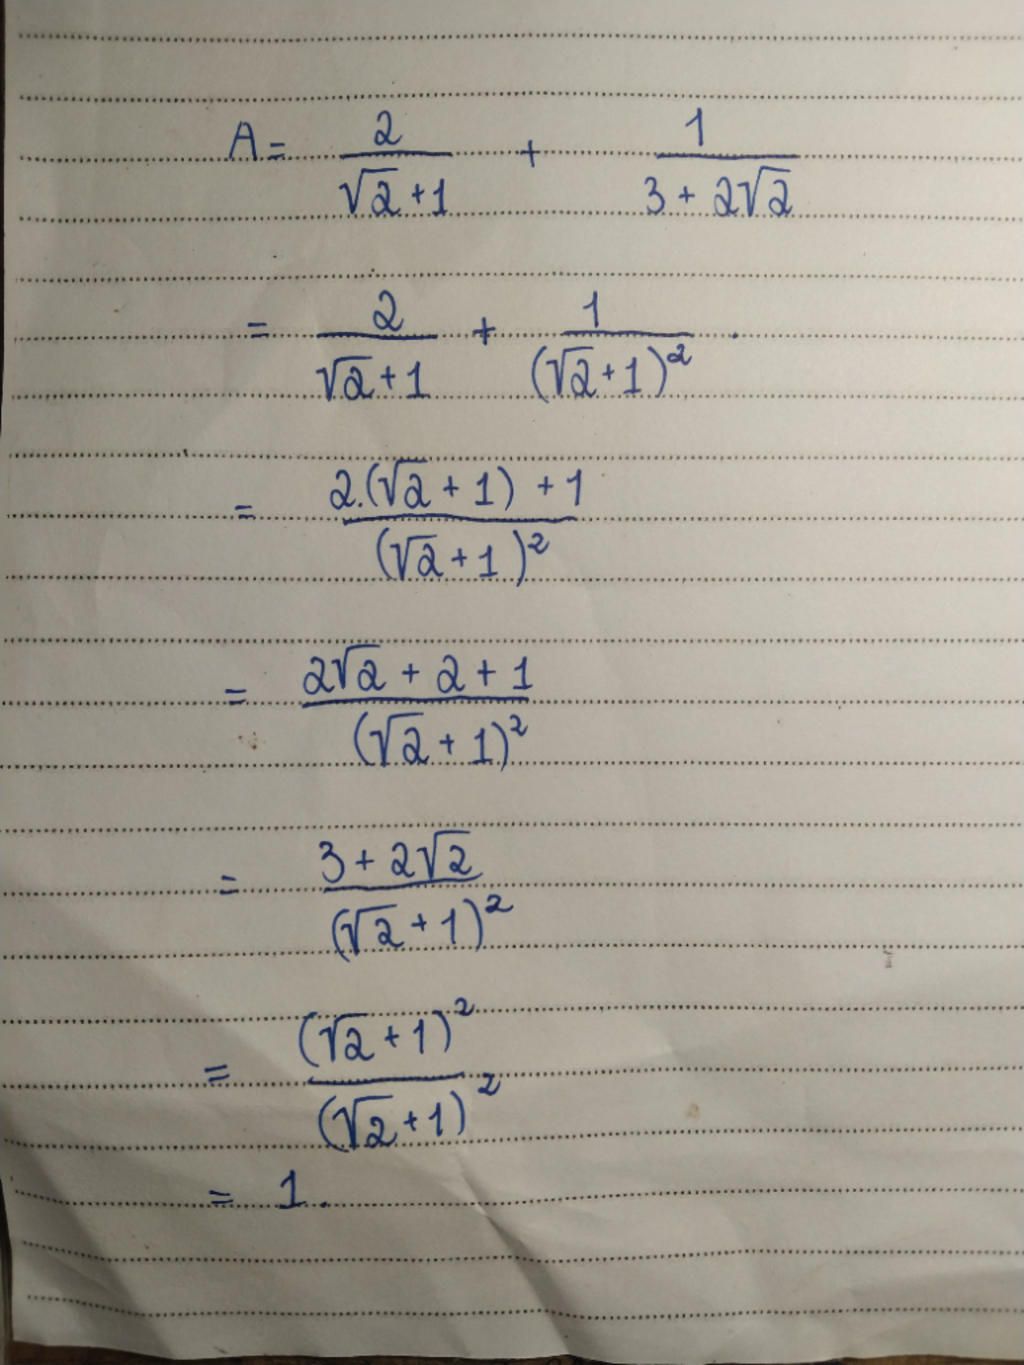 A = 2/(√2 + 1) + 1/(3 + 2√2)
= 2/(√2 + 1) + 1/(√2 + 1)² .
= (2.(√2 + 1) + 1)/(√2 + 1)²
= (2√2 + 2 + 1)/(√2 + 1)²
= (3 + 2√2)/(√2 + 1)²
= (√2 + 1)²/(√2 + 1)²
= 1 .